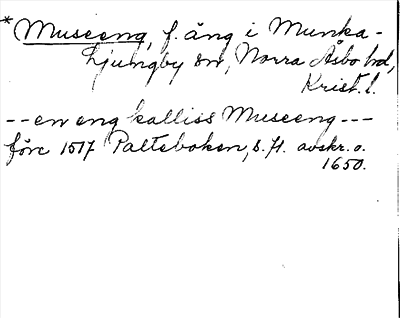 *Museeng, f. äng i Munka-
Ljungby sn, Norra Åsbo hd,
Krist. l.
--en eng kalliss Museeng---
före 1517 Palteboken, s. 71. avskr. o.
1650.